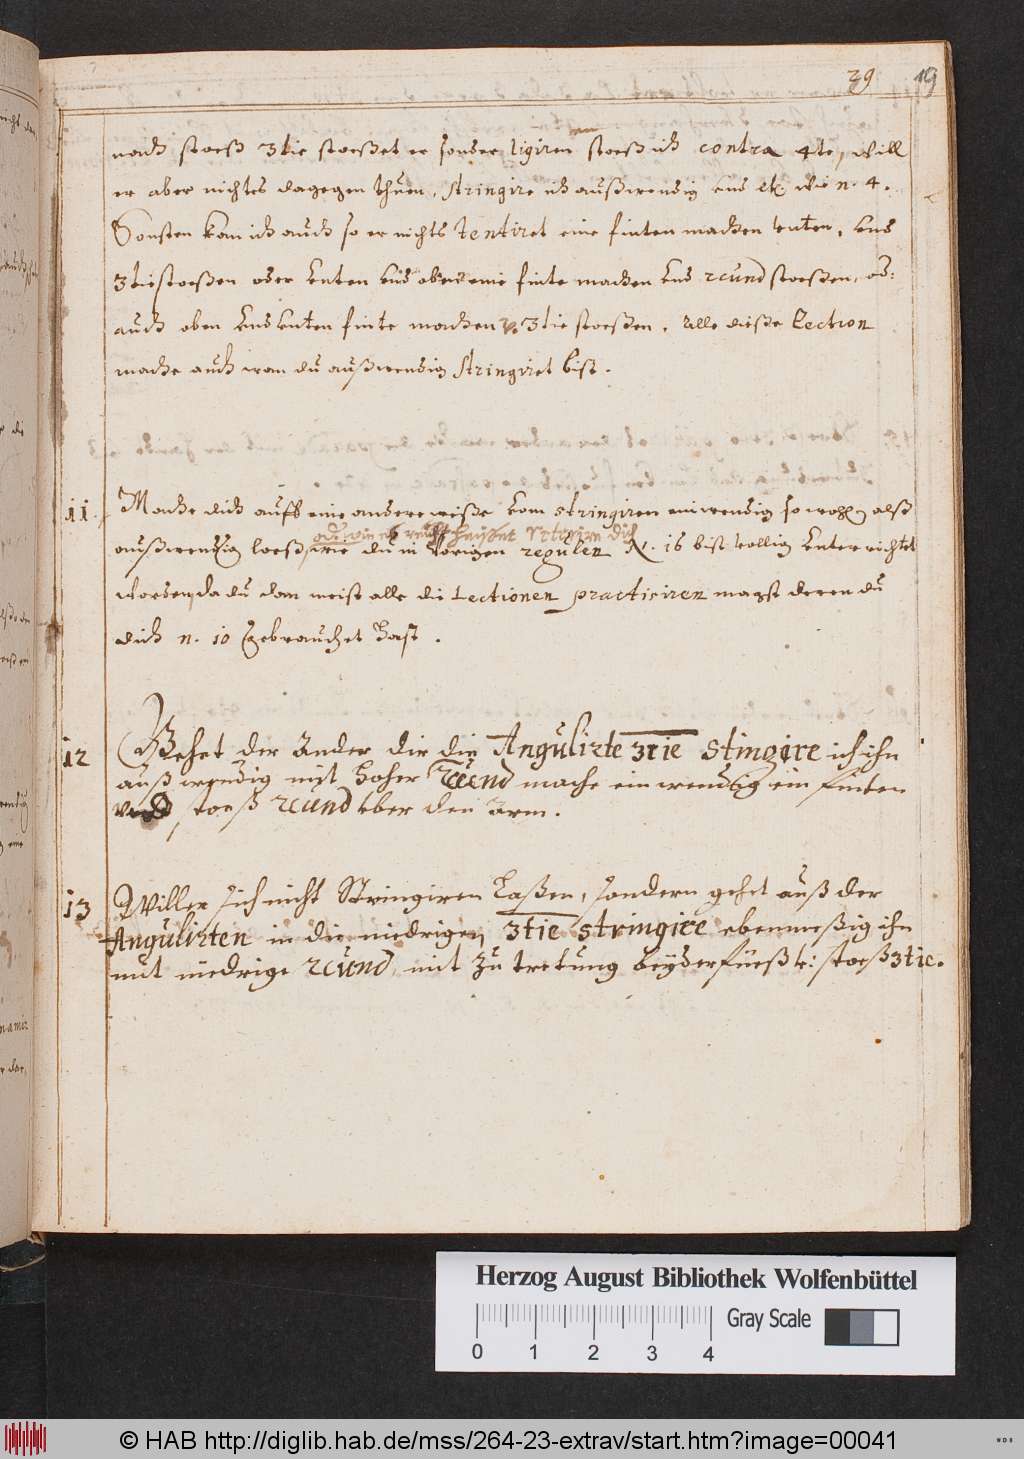 29 19
noch stoeß 3tie stoeßet er sonder ligiren stoeß ich contra 4te, will
er aber nichtes dagegen thuen, stringire ich außwendig und etc. wie n. 4.
Sonsten kan ich auch so er nichts tentiret eine finten machen unten, und
3tie stoeßen oder unten und oben eine finte machen und 2cund stoeßen, od:
auch oben und unten finte machen 3tie stoeßen. Alle dieße Lection
mache auch wan du außwendig stringiret bist.
11. Mache dich auff eine andere weiße vom stringiren einwendig so wohl alß
oder wie es recht heißet retirire dich
außwendig loeß, wie du in vorigen regulen N. 16 bist vollig unterrichtet
worden, da du dan meist alle die Lectionen practiciren magst deren du
dich n. 10 gebrauchet hast.
12 Gehet der Ander dir die Angulirte 3tie stingire ich ihn
außwendig mit hoher 2cund mache einwendig ein finten
und stoeß 2cund uber den Arm.
13 Will er sich nicht Stringiren laßen, sondern gehet auß der
Angulirten in die niedrigen 3tie stringire ebenmeßig ihn
mit niedrige 2cund, mit zu tretung beyder füeß u: stoeß 3tie.
Herzog August Bibliothek Wolfenbüttel
Gray Scale
0 1 2 3 4
© HAB http://diglib.hab.de/mss/264-23-extrav/start.htm?image=00041